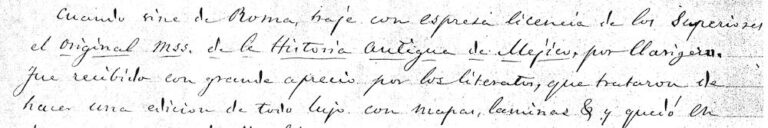 Cuando vine de Roma, traje con espresa licencia de los Superiores
el original mss. de la Historia antigua de Mejico, por Clavigero.
Fue recibido con grande aprecio por los literatos, que trataron de
hacer una edicion de todo lujo con mapas, laminas & y quedó en